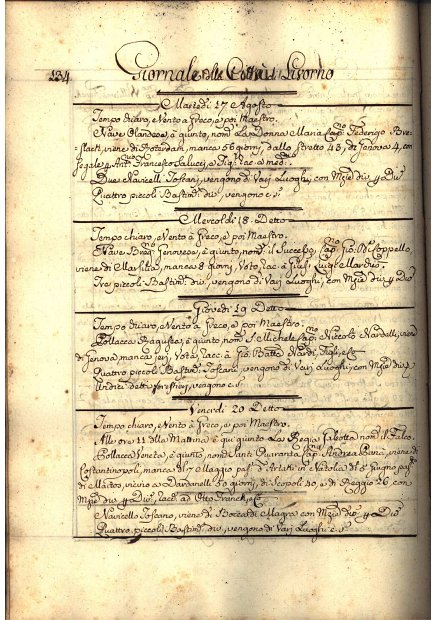 134 Giornale della Posta di Livorno
Martedì 17 Agosto
Tempo chiaro, e Vento a Greco, e poi Maestro.
Nave Olandese, è quinto, nom. La Donna Maria Cap. Federigo Bre-
slach, viene di Amsterdam, manca 56 giorni, dallo stretto 48, da Genova 4, con
segale Ant. Francesco Salucci, e Fig. rac. a med.
Due Navicelli Toscani, vengono di Varj Luoghi, con Mzie div. p Div.
Quattro piccoli Bastim. div. vengono c. s.
Mercoldi 18. Detto
Tempo chiaro, e Vento a Greco, e poi Maestro.
Nave Genovese, è quinto, nom. il Successo, Cap. Gio. Coppello,
viene di Marsilia, manca 8 giorni, Vota, rac. a Luigi
Tre piccoli Bastim. div. vengono di Varj Luoghi, con Mzie div. p Div.
Giovedì 19 Detto
Tempo chiaro, e Vento a Greco, e poi Maestro.
Pollacca Ragusea, è quinto, nom. S. Michele Cap. Niccolò Nardelli, viene
di Genova manca sei, Vota, racc. a Gio. Batta Nardi, Figli, e C.
Quattro piccoli Bastim. Toscani, vengono di Varj Luoghi, con Mzie div. p
detti forestieri, vengono c. s.
Venerdì 20 Detto
Tempo chiaro, e Vento a Greco, e poi Maestro.
Alle ore 11 della Mattina è qui giunto La Regia nom. il Falco.
Pollacca Veneta, è quinto, nom. Santi Quaranta, Cap. Andrea Pana, viene di
Costantinopoli, manca di 7 Maggio pas. d' Artachi in Natolia di 5 giugno pas.
di Micros, vicino a Dardanelli 50 giorni, di Scopoli 30, e di Reggio 26 con
Mzie div. p Div. racc. ad Otto Franck, e C.
Navicello Toscano, viene di Bocca di Magra con Mzie div. p Div.
Quattro piccoli Bastim. div. vengono di Varj Luoghi c. s.